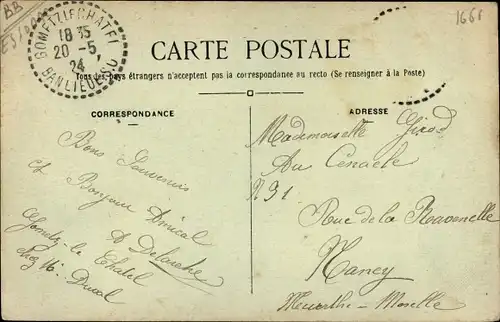 BB
1668
GOMETZ LE CHATEL
18 35
20 -5
24
BANLIEUE S.O
CARTE POSTALE
Tous les pays étrangers n'acceptent pas la correspondance au recto (Se renseigner à la Poste)
CORRESPONDANCE
ADRESSE
Bons Souvenirs
et Bonjour Amical
A Delanche
Gometz-le Chatel
chez M. Duval
Mademoiselle Girod
Au Cénacle
N 31
Rue de la Ravenelle
Nancy
Meurthe-Moselle